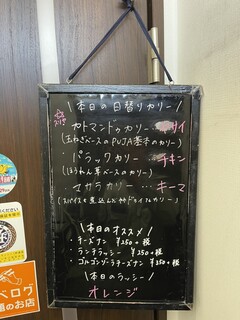 \本日の日替りカリー/
・カトマンドゥカリー…マサイ
(玉ねぎベースのPUJA基本のカリー)
・パラックカリー …チキン
(ほうれん草ベースのカリー)
・マサラカリー …キーマ
\本日のオススメ/
・チーズナン ¥250+税
・ランチラッシー ¥250+税
・ゴルゴンゾーラチーズナン ¥350+税
\本日のラッシー/
オレンジ
ベログ
のお店